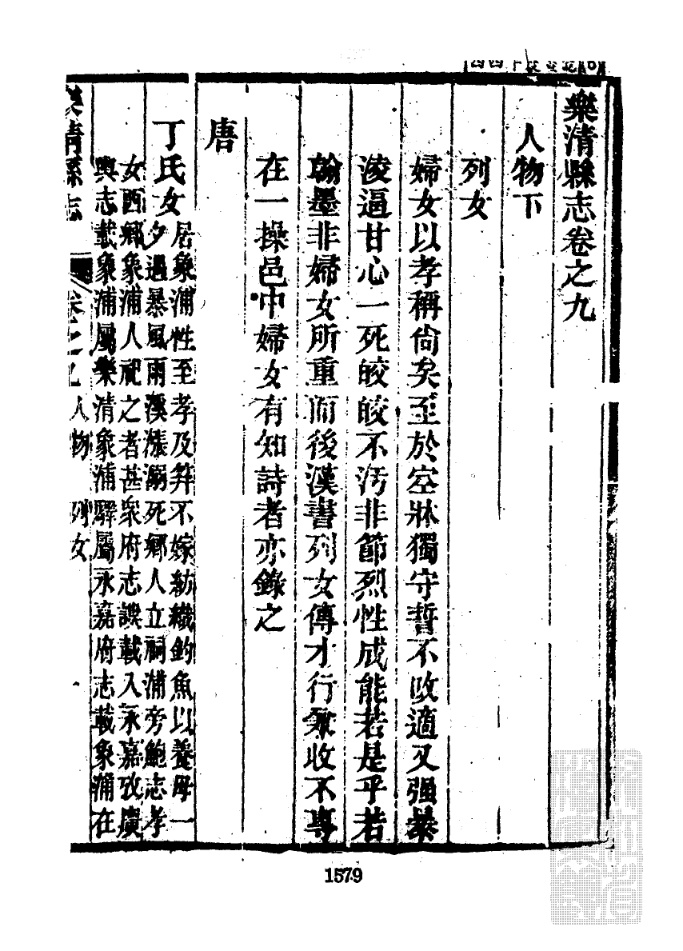 樂清縣志卷之九
人物下
列女
婦女以孝稱尙矣至於空牀獨守誓不改適又强暴
淩逼甘心一死皎皎不汚非節烈性成能若是乎若
翰墨非婦女所重而後漢書列女傳才行兼收不專
在一操邑中婦女有知詩者亦錄之
唐
丁氏女
居象浦性至孝及笄不嫁紡織釣魚以養母一
夕過暴風雨溪漲溺死鄉人立祠浦旁鮑志孝
女西鄉象浦人祀之者甚衆府志誤載入永嘉攷廣
輿志載象浦屬樂清象浦驛屬永嘉府志載象浦在
樂清縣志 卷之九 人物 列女
1579